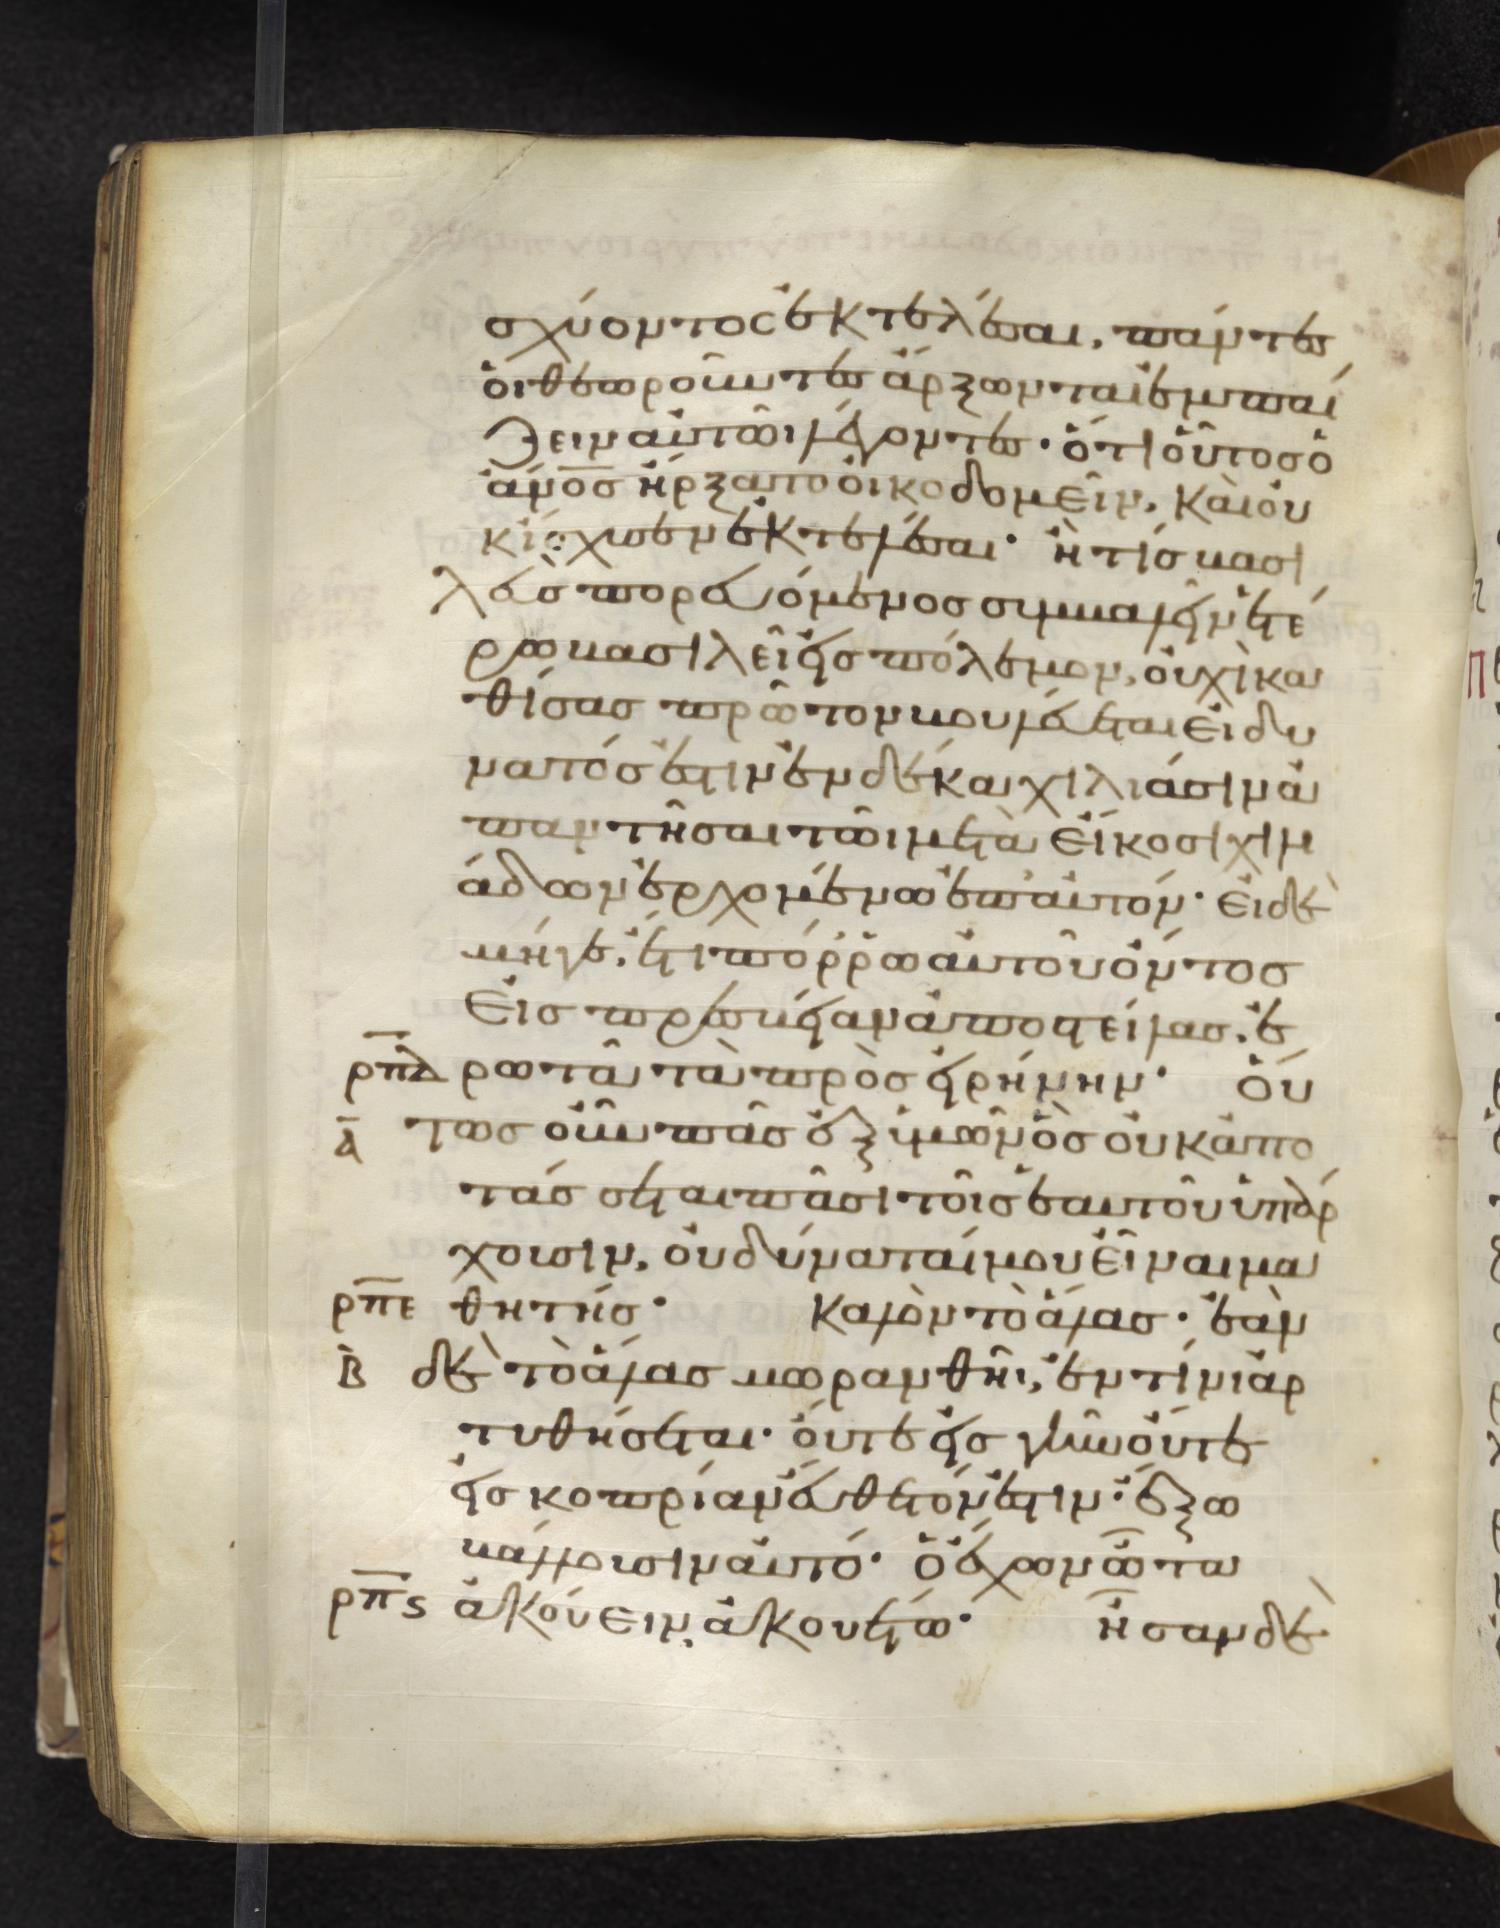 σχύοντος ἐκτελέσαι, πάντες
οἱ θεωροῦντες ἄρξωνται ἐμπαί
ζειν αὐτῶι λέγοντες· ὅτι οὗτος ὁ
ἄν̅ο̅ς ἤρξατο οἰκοδομεῖν, καὶ οὐ
κ ἴσχυσεν ἐκτελέσαι· ἢ τίς βασι
λεὺς πορευόμενος συμβαλεῖν ἑτέ
ρω βασιλεῖ εἰς πόλεμον, οὐχὶ κα
θίσας πρῶτον βουλεύεται εἰ δυ
νατός ἐστιν ἐν δέκα χιλιάσιν ἀ
παντῆσαι τῶι μετὰ εἴκοσι χιλι
άδων ἐρχομένω ἐπ' αὐτόν· εἰ δὲ
μήγε, ἔτι πόρρω αὐτοῦ ὄντος
εἰς πρεσβείαν ἀποστείλας, ἐ
ρπδ ρωτᾶ τὰ πρὸς εἰρήνην· Οὕ
α τως οὖν πᾶς ἐξ ὑμῶν ὃς οὐκ ἀπο
τάσσεται πᾶσι τοῖς ἑαυτοῦ ὑπάρ
χουσιν, οὐ δύναταί μου εἶναι μα
ρπε θητής· Καλὸν τὸ ἅλας· ἐὰν
β δὲ τὸ ἅλας μωρανθῆι, ἐν τίνι ἀρ
τυθήσεται· οὔτε εἰς γῆν οὔτε
εἰς κοπρίαν εὔθετόν ἐστιν· ἔξω
βάλλουσιν αὐτό· ὁ ἔχων ὦτα
ρπς ἀκούειν, ἀκουέτω· Ἦσαν δὲ